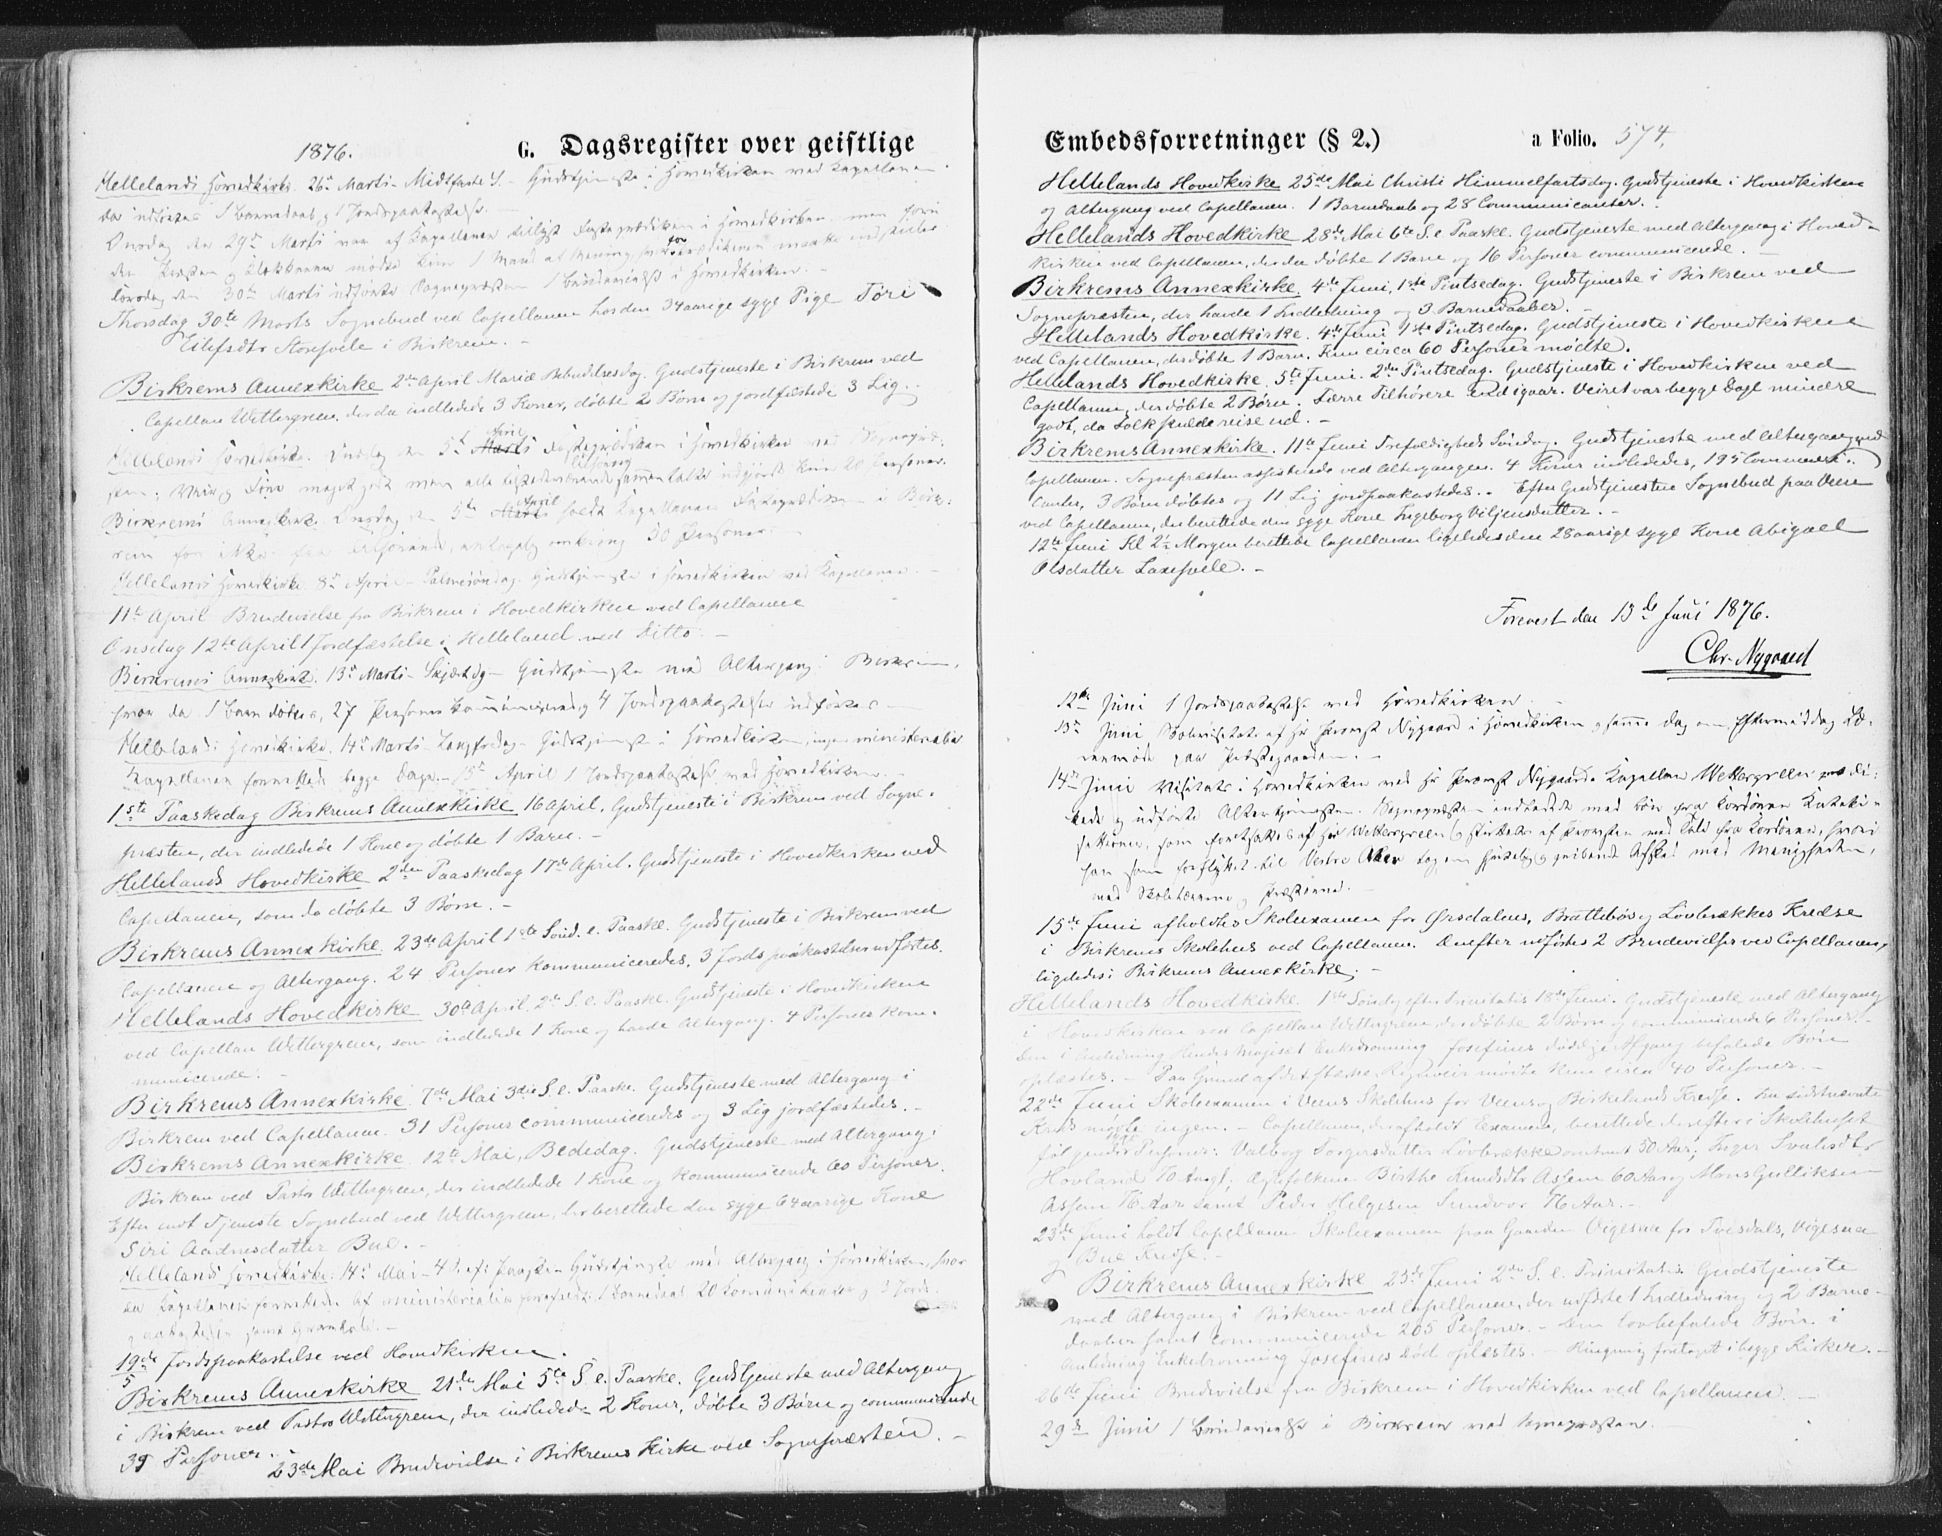 1876.
G. Dagsregister over geistlige
Hellelands Hovedkirke. 26de Marts Midfaste S. Gudstjeneste i Hovedkirken ved Kapellanen
da udførtes 1 Barnedaab og 1 Jordspaakastelse.
Onsdag den 29de Marts var af Kapellanen Fasteprædiken i Hovedkirken men foru
den Præsten og Klokkeren mødte kun 1 Mand af Menig
den 30te Marts udførte Sognepræsten 1 Brudevielse i Hovedkirken.
Thorsdag 30te Marts Sognebud ved Capellanen hos den 34aarige syge Pige Tøri
Eilefsdtr Storsvele i Birkrem. -
Birkrems Annexkirke 2den April Mariæ Bebudelsesdag. Gudstjeneste i Birkrem ved
Capellan Wettergreen, der da indledede 3 Koner, døbte 2 Børn og jordfæstede 3 Lig.
Hellelands Hovedkirke. Onsdag den 5te April Fasteprædiken i Hovedkirken ved Sognepræ-
sten; meget godt men alle udgjorde kun 20 Personer.
Birkrems Annexkirke Onsdag den 5te April holdt Kapellanen Fasteprædiken i Birk-
rem for omkring 30 Personer
Hellelands Hovedkirke 8de April Palmesøndag. Gudstjeneste i Hovedkirken ved Kapellanen. -
11te April Brudevielse fra Birkrem i Hovedkirken ved Capellanen
Onsdag 12te April 1 Jordfæstelse i Helleland ved Ditto. -
Birkrems Annexkirke. 13de Marts - Skjærtdg - Gudstjeneste med Altergang i Birkrem,
hvor da 1 Barn døbtes, 27 Personer kommunicerede og 4 Jordspaakastelser udførtes -
Hellelands Hovedkirke. 14de Marts - Langfredag - Gudstjeneste i Hovedkirken, ingen ministerialia
Kapellanen forrettede begge Dage. - 15de April 1 Jordspaakastelse ved Hovedkirken. -
1ste Paaskedag Birkrems Annexkirke 16 April. Gudstjeneste i Birkrem ved Sogne-
præsten, der indledede 1 Kone og døbte 1 Barn. -
Hellelands Hovedkirke 2den Paaskedag 17de April. Gudstjeneste i Hovedkirken ved
Capellanen, som da døbte 3 Børn. -
Birkrems Annexkirke 23de April 1ste Sønd. e. Paaske. Gudstjeneste i Birkrem ved
Capellanen og Altergang. 24 Personer kommuniceredes, 3 Jordspaakastelser udførtes.
Hellelands Hovedkirke 30te April 2den S. e. Paaske. Gudstjeneste i Hovedkirken
ved Capellan Wettergreen, som indledede 1 Kone og havde Altergang. 4 Personer kom-
municerede. -
Birkrems Annexkirke 7de Mai 3die S. e. Paaske. Gudstjeneste med Altergang i
Birkrem ved Capellanen. 31 Personer communiceredes og 3 Lig jordfæstedes. -
Birkrems Annexkirke 12te Mai, Bededag. Gudstjeneste med Altergang i
Birkrem ved Pastor Wettergreen, der indledede 1 Kone og kommunicerede 60 Personer.
Efter endt Tjeneste Sognebud ved Wettergreen, der berettede den syge 64aarige Kone
Siri Aadnesdatter Bue. -
Hellelands Hovedkirke: 14de Mai - 4 S. ef: Paaske - Gudstjeneste med Altergang i Hovedkirken, hvor
da Kapellanen forrettede. Af ministerialia 1 Barnedaab 20 Kommunikanter og 3 Jords-
paakastelser
19de/5 Jordspaakastelse ved Hovedkirken.
Birkrems Annexkirke 21de Mai 5te S. e. Paaske. Gudstjeneste med Altergang
i Birkrem ved Pastor Wettergreen, der indledede 2 Koner, døbte 3 Børn og communicerede
35 Personer. -
23de Mai Brudevielse i Birkrems Kirke ved Sognepræsten. -
Embedsforretninger (§ 2.)
a Folio. 574.
Hellelands Hovedkirke 25de Mai Christi Himmelfartsdag. Gudstjeneste i Hovedkirken
og Altergang ved Capellanen. 1 Barnedaab og 28 Communicanter.
Hellelands Hovedkirke 28de Mai 6te S. e. Paaske. Gudstjeneste med Altergang i Hoved-
kirken ved Capellanen, der der døbte 1 Barn og 16 Personer communicerede. -
Birkrems Annexkirke. 4de Juni, 1ste Pintsedag. Gudstjeneste i Birkrem ved
Sognepræsten, der havde 1 Indledning og 3 Barnedaaber. -
Hellelands Hovedkirke. 4de Juni 1ste Pintsedag. Gudstjeneste i Hovedkirken
ved Capellanen, der døbte 1 Barn. Kun circa 60 Personer mødte.
Hellelands Hovedkirke. 5te Juni. 2den Pintsedag. Gudstjeneste i Hovedkirken ved
Capellanen, der døbte 2 Børn. Færre Tilhørere end igaar. Veiret var begge Dage mindre
godt, da Folk skulde reise ud. -
Birkrems Annexkirke. 11te Juni Trefoldigheds Søndag. Gudstjeneste med Altergang ved
Capellanen. Sognepræsten assisterede ved Altergangen. 4 Koner indlededes, 195 Communi-
canter, 3 Børn døbtes og 11 Lig jordpaakastedes. - Efter Gudstjenesten Sognebud paa Veen
ved Capellanen, der berettede den syge Kone Ingeborg Viljensdatter. -
12te Juni Kl 2½ Morgen berettede Capellanen ligeledes den 28aarige syge Kone Abigael
Olsdatter Laxesvele. -
Forevist den 13de Juni 1876.
Chr. Nygaard
12te Juni 1 Jordspaakastelse ved Hovedkirken -
13de Juni af Hr Provst Nygaard i Hovedkirken og samme Dag om Eftermiddag Læ-
rermøde paa Præstegaarden. -
14de Juni Visitats i Hovedkirken ved Hr Provst Nygaard. Kapellan Wettergreen prædi-
kede og udførte Altertjenesten. Sognepræsten indledede med Bøn fra Kordøren Kateki-
sationen, som foretoges af Hr Wettergreen og sluttedes af Provsten med Tale fra Kordøren, hvori
han som forflyttet til Vestre Aker tog en hjertelig og gribende Afsked med Menigheden,
med Skolelærerne og Præsterne. -
15de Juni afholdtes Skoleexamen for Ørsdalens, Brattebøs og Løvbrækkes Kredse
i Birkrems Skolehus ved Capellanen. Derefter udførtes 2 Brudevielser ved Capellanen,
ligeledes i Birkrems Annexkirke. -
Hellelands Hovedkirke 1ste Søndag eft. Trinitatis 18de Juni. Gudstjeneste med Altergang
i Hovedkirken ved Capellan Wettergreen, der døbte 2 Børn og communicerede 6 Personer. -
Den i Anledning Hendes Majestæt Enkedronning Josefines dødelige Afgang befalede Bøn
oplæstes. - Paa Grund af det stærke Regnveir mødte kun circa 40 Personer. -
22de Juni Skoleexamen i Veens Skolehus for Veens og Birkelands Kredse. Fra sidstnævnte
Kreds mødte ingen. - Capellanen, der afholdt Examen, berettede derefter i Skolehuset
følgende Personer: Valborg Torgersdatter Løvbrække omtrent 50 Aar; Inger Svalesdtr
Hovland 70 Aar; Ægtefolkene Birthe Knudsdtr Assem 60 Aar og Mons Gulliksen
Assem 76 Aar samt Peder Helgesen Sundvor 76 Aar. -
23de Juni holdt Capellanen Skoleexamen paa Gaarden Vigesaa for Tvedals, Vigesaa
og Bue Kredse. -
Birkrems Annexkirke 25de Juni 2den S. e. Trinitatis. Gudstjeneste
med Altergang i Birkrem ved Capellanen, der udførte 1 Indledning og 2 Barne-
daaber samt communicerede 205 Personer. - Den lovbefalede Bøn i
Anledning Enkedronning Josefines Død oplæstes. - Ringning foretaget i begge Kirker. -
26de Juni Brudevielse fra Birkrem i Hovedkirken ved Capellanen. -
29de Juni 1 Brudevielse i Birkrem ved Sognepræsten. -